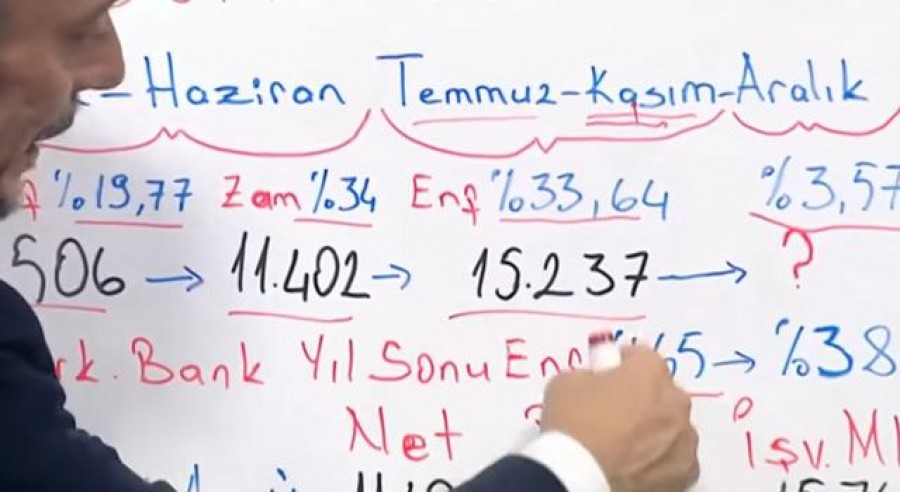 - Haziran Temmuz-Kasım-Aralık
%19,77 Zam %34 Enf %33,64 %3,57
506 → 11.402 → 15.237 → ?
rk. Bank Yıl Sonu Enf %65 → %38
Net İşv. M